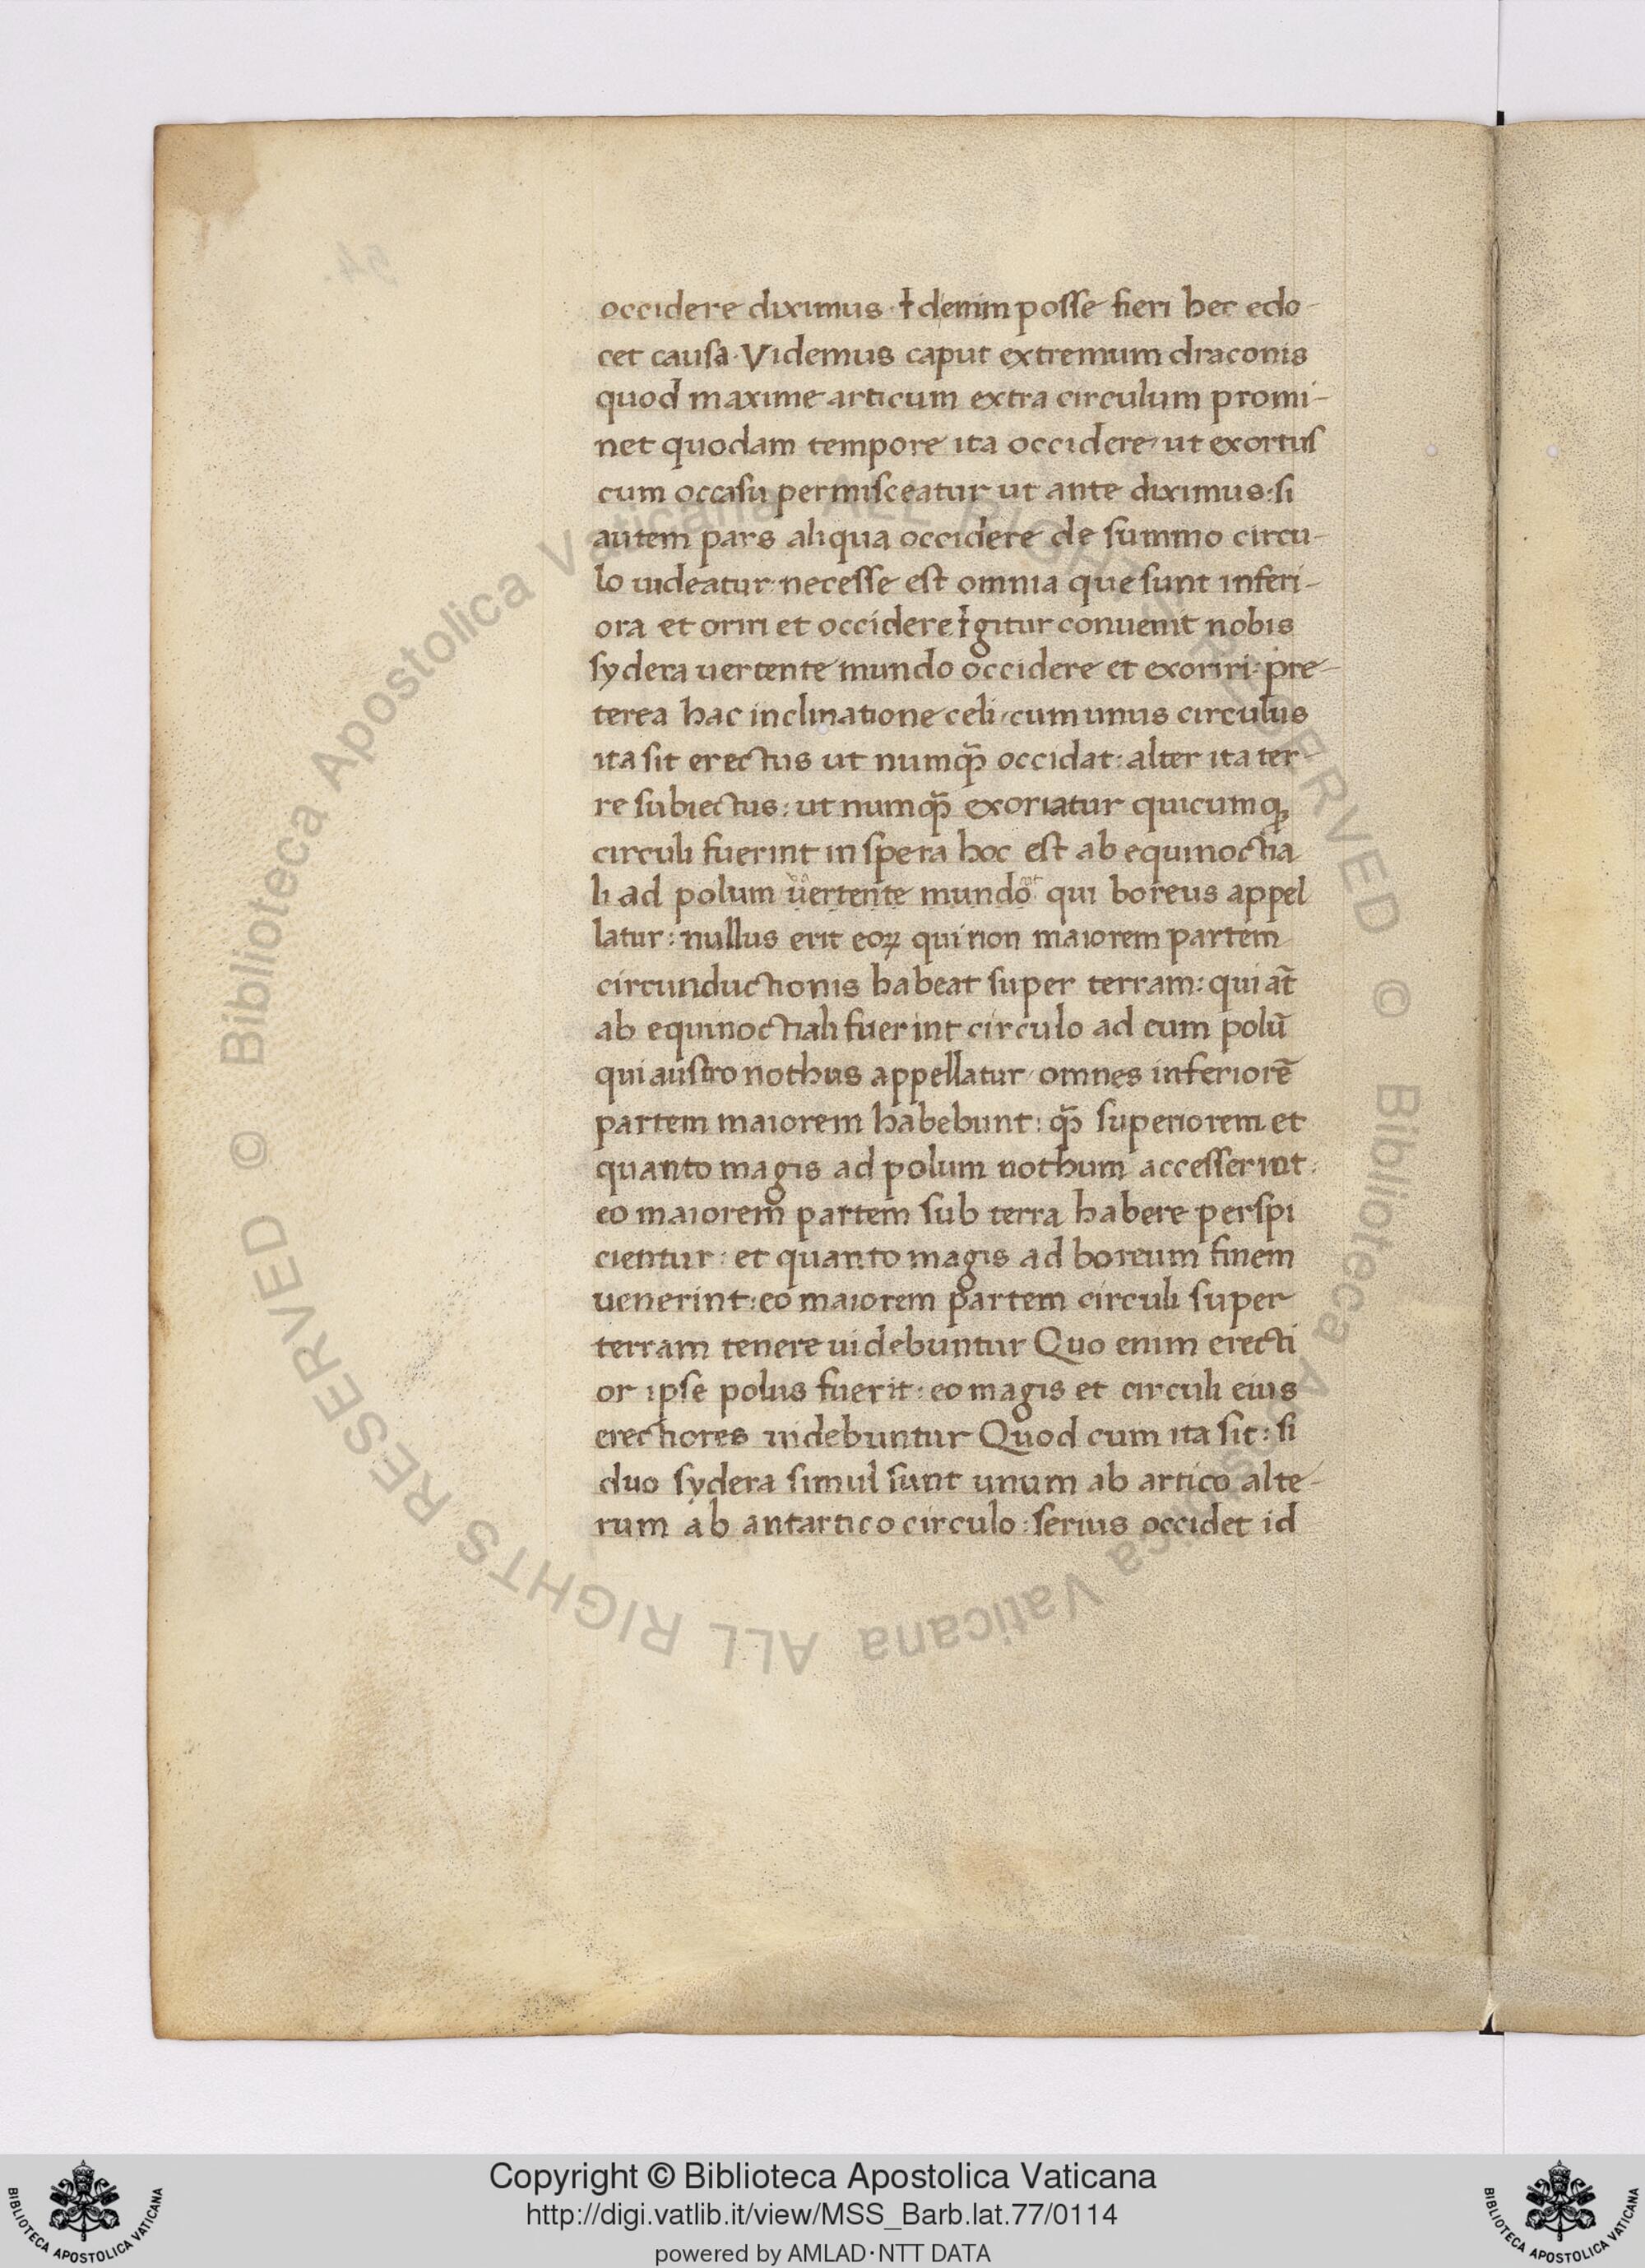 occidere diximus. Id enim posse fieri hec edo-
cet causa. Videmus caput extremum draconis
quod maxime articum extra circulum promi-
net quodam tempore ita occidere, ut exortus
cum occasu permisceatur ut ante diximus: si
autem pars aliqua occidere de summo circu-
lo uideatur necesse est omnia que sunt inferi-
ora et oriri et occidere Igitur conuenit nobis
sydera uertente mundo occidere et exoriri: pre-
terea hac inclinatione celi, cum unus circulus
ita sit erectus ut numq̃ occidat: alter ita ter-
re subiectus: ut numq̃ exoriatur quicumqꝫ
circuli fuerint in spera hoc est ab equinoctia
li ad polum uertente mundo qui boreus appel
latur: nullus erit eoꝝ qui non maiorem partem
circunductionis habeat super terram: qui at̃
ab equinoctiali fuerint circulo ad eum polũ
qui austro nothus appellatur, omnes inferiorẽ
partem maiorem habebunt: q̃ superiorem. et
quanto magis ad polum nothum accesserint:
eo maiorem partem sub terra habere perspi
cientur: et quanto magis ad boreum finem
uenerint: eo maiorem partem circuli super
terram tenere uidebuntur Quo enim erecti
or ipse polus fuerit: eo magis et circuli eius
erectiores uidebuntur Quod cum ita sit: si
duo sydera simul sunt unum ab artico alte-
rum ab antartico circulo: serius occidet id
© Biblioteca Apostolica Vaticana ALL RIGHTS RESERVED
© Biblioteca Apostolica Vaticana ALL RIGHTS RESERVED
Copyright © Biblioteca Apostolica Vaticana
http://digi.vatlib.it/view/MSS_Barb.lat.77/0114
powered by AMLAD·NTT DATA
BIBLIOTECA APOSTOLICA VATICANA
BIBLIOTECA APOSTOLICA VATICANA